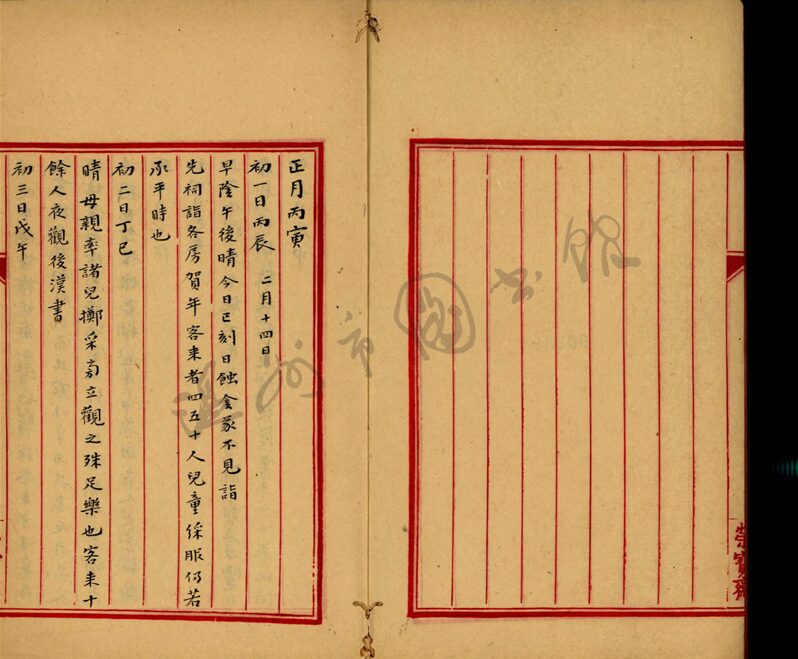 榮寶齋
正月丙寅
初一日丙辰 二月十四日
早陰午後晴今日巳刻日蝕食蒙不見詣
先祠詣各房賀年客來者四五十人兒童綵服仍若
承平時也
初二日丁巳
晴 母親率諸兒擲采旁立觀之殊足樂也客來十
餘人夜觀後漢書
初三日戊午
溫州市圖書館